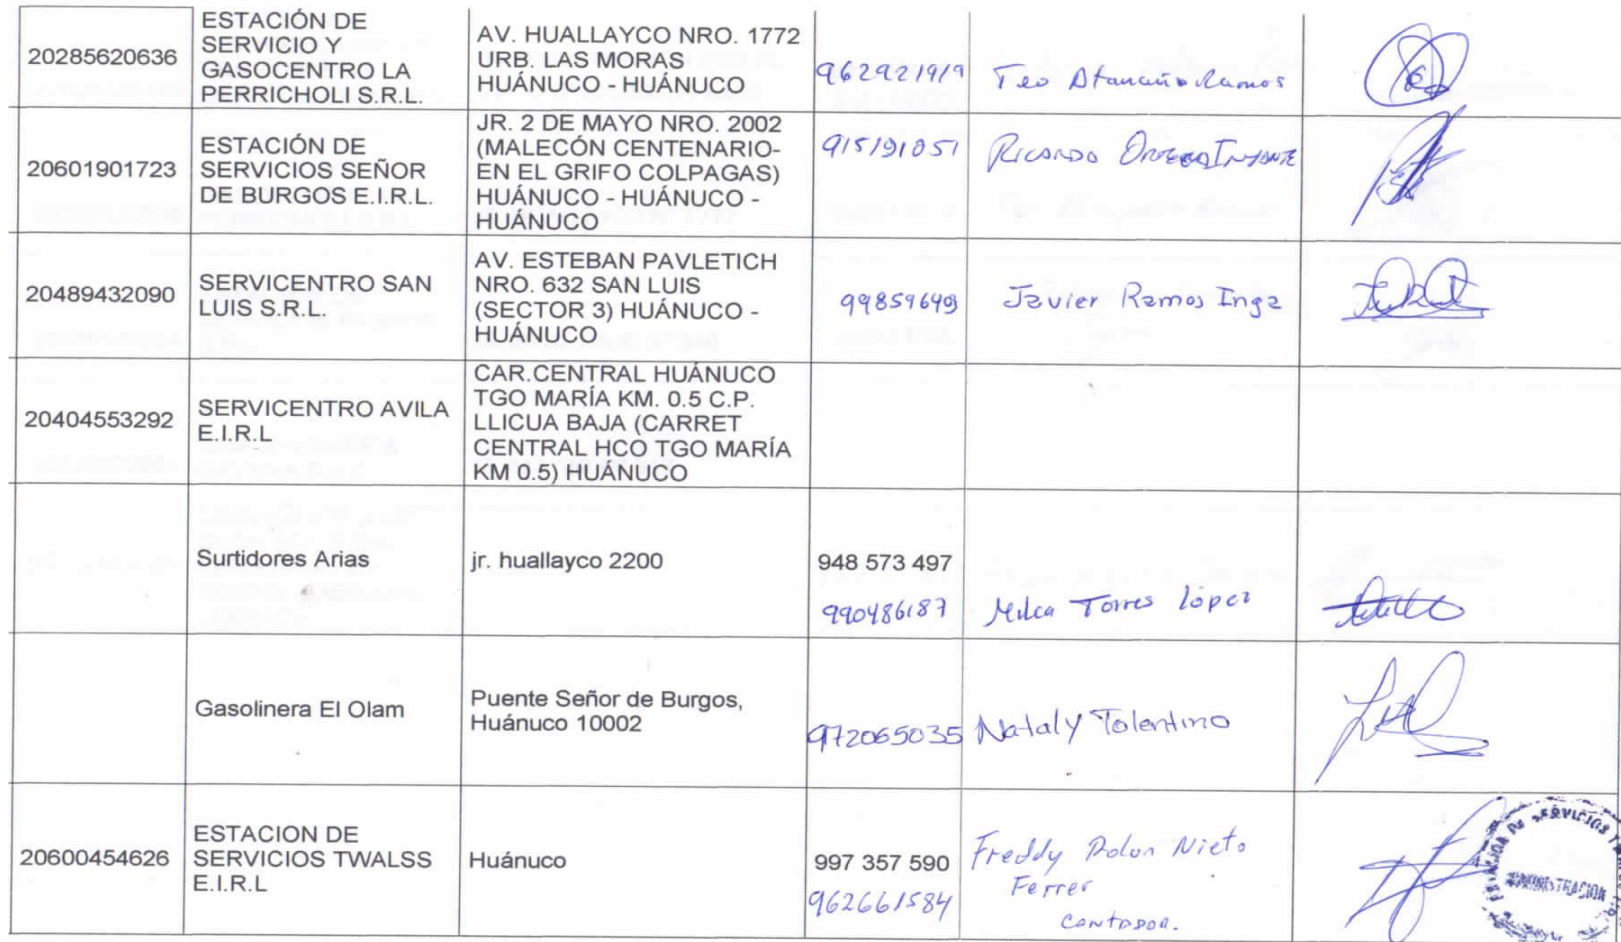 20285620636
ESTACIÓN DE
SERVICIO Y
GASOCENTRO LA
PERRICHOLI S.R.L.
AV. HUALLAYCO NRO. 1772
URB. LAS MORAS
HUÁNUCO - HUÁNUCO
962921919
Teo Ramos
20601901723
ESTACIÓN DE
SERVICIOS SEÑOR
DE BURGOS E.I.R.L.
JR. 2 DE MAYO NRO. 2002
(MALECÓN CENTENARIO-
EN EL GRIFO COLPAGAS)
HUÁNUCO - HUÁNUCO -
HUÁNUCO
915191051
RICARDO
20489432090
SERVICENTRO SAN
LUIS S.R.L.
AV. ESTEBAN PAVLETICH
NRO. 632 SAN LUIS
(SECTOR 3) HUÁNUCO -
HUÁNUCO
Javier Ramos Inga
20404553292
SERVICENTRO AVILA
E.I.R.L
CAR.CENTRAL HUÁNUCO
TGO MARÍA KM. 0.5 C.P.
LLICUA BAJA (CARRET
CENTRAL HCO TGO MARÍA
KM 0.5) HUÁNUCO
Surtidores Arias
jr. huallayco 2200
948 573 497
990486187
Milca Torres López
Gasolinera El Olam
Puente Señor de Burgos,
Huánuco 10002
972065035
Nataly Tolentino
20600454626
ESTACION DE
SERVICIOS TWALSS
E.I.R.L
Huánuco
997 357 590
962661584
Freddy Nieto
Ferrer
Contador.
DE SERVICIOS
ADMINISTRACION